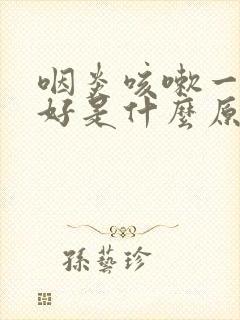 咽炎咳嗽一
好是什麼原
孫藝珍